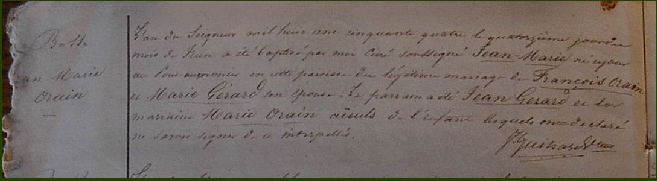 Bapt.
Jean Marie
Orain
L'an du Seigneur mil huit cent cinquante quatre le quatorzième jour du
mois de Juin a été baptisé par moi Curé soussigné Jean Marie né ce jour
au bourg en cette paroisse du légitime mariage de François Orain
et Marie Gérard son épouse. Le parrain a été Jean Gérard et la
marraine Marie Orain aïeuls de l'enfant lesquels ont déclaré
ne savoir signer de ce interpellés.